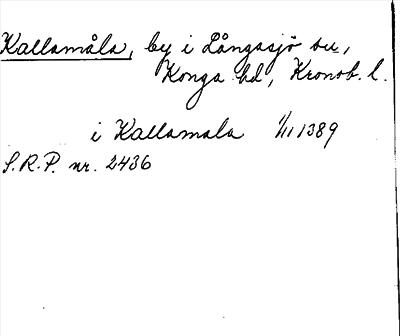 Kallamåla, by i Långasjö sn,
Konga hd, Kronob. l.
i Kallamala 1/11 1389
S.R.P. nr. 2436